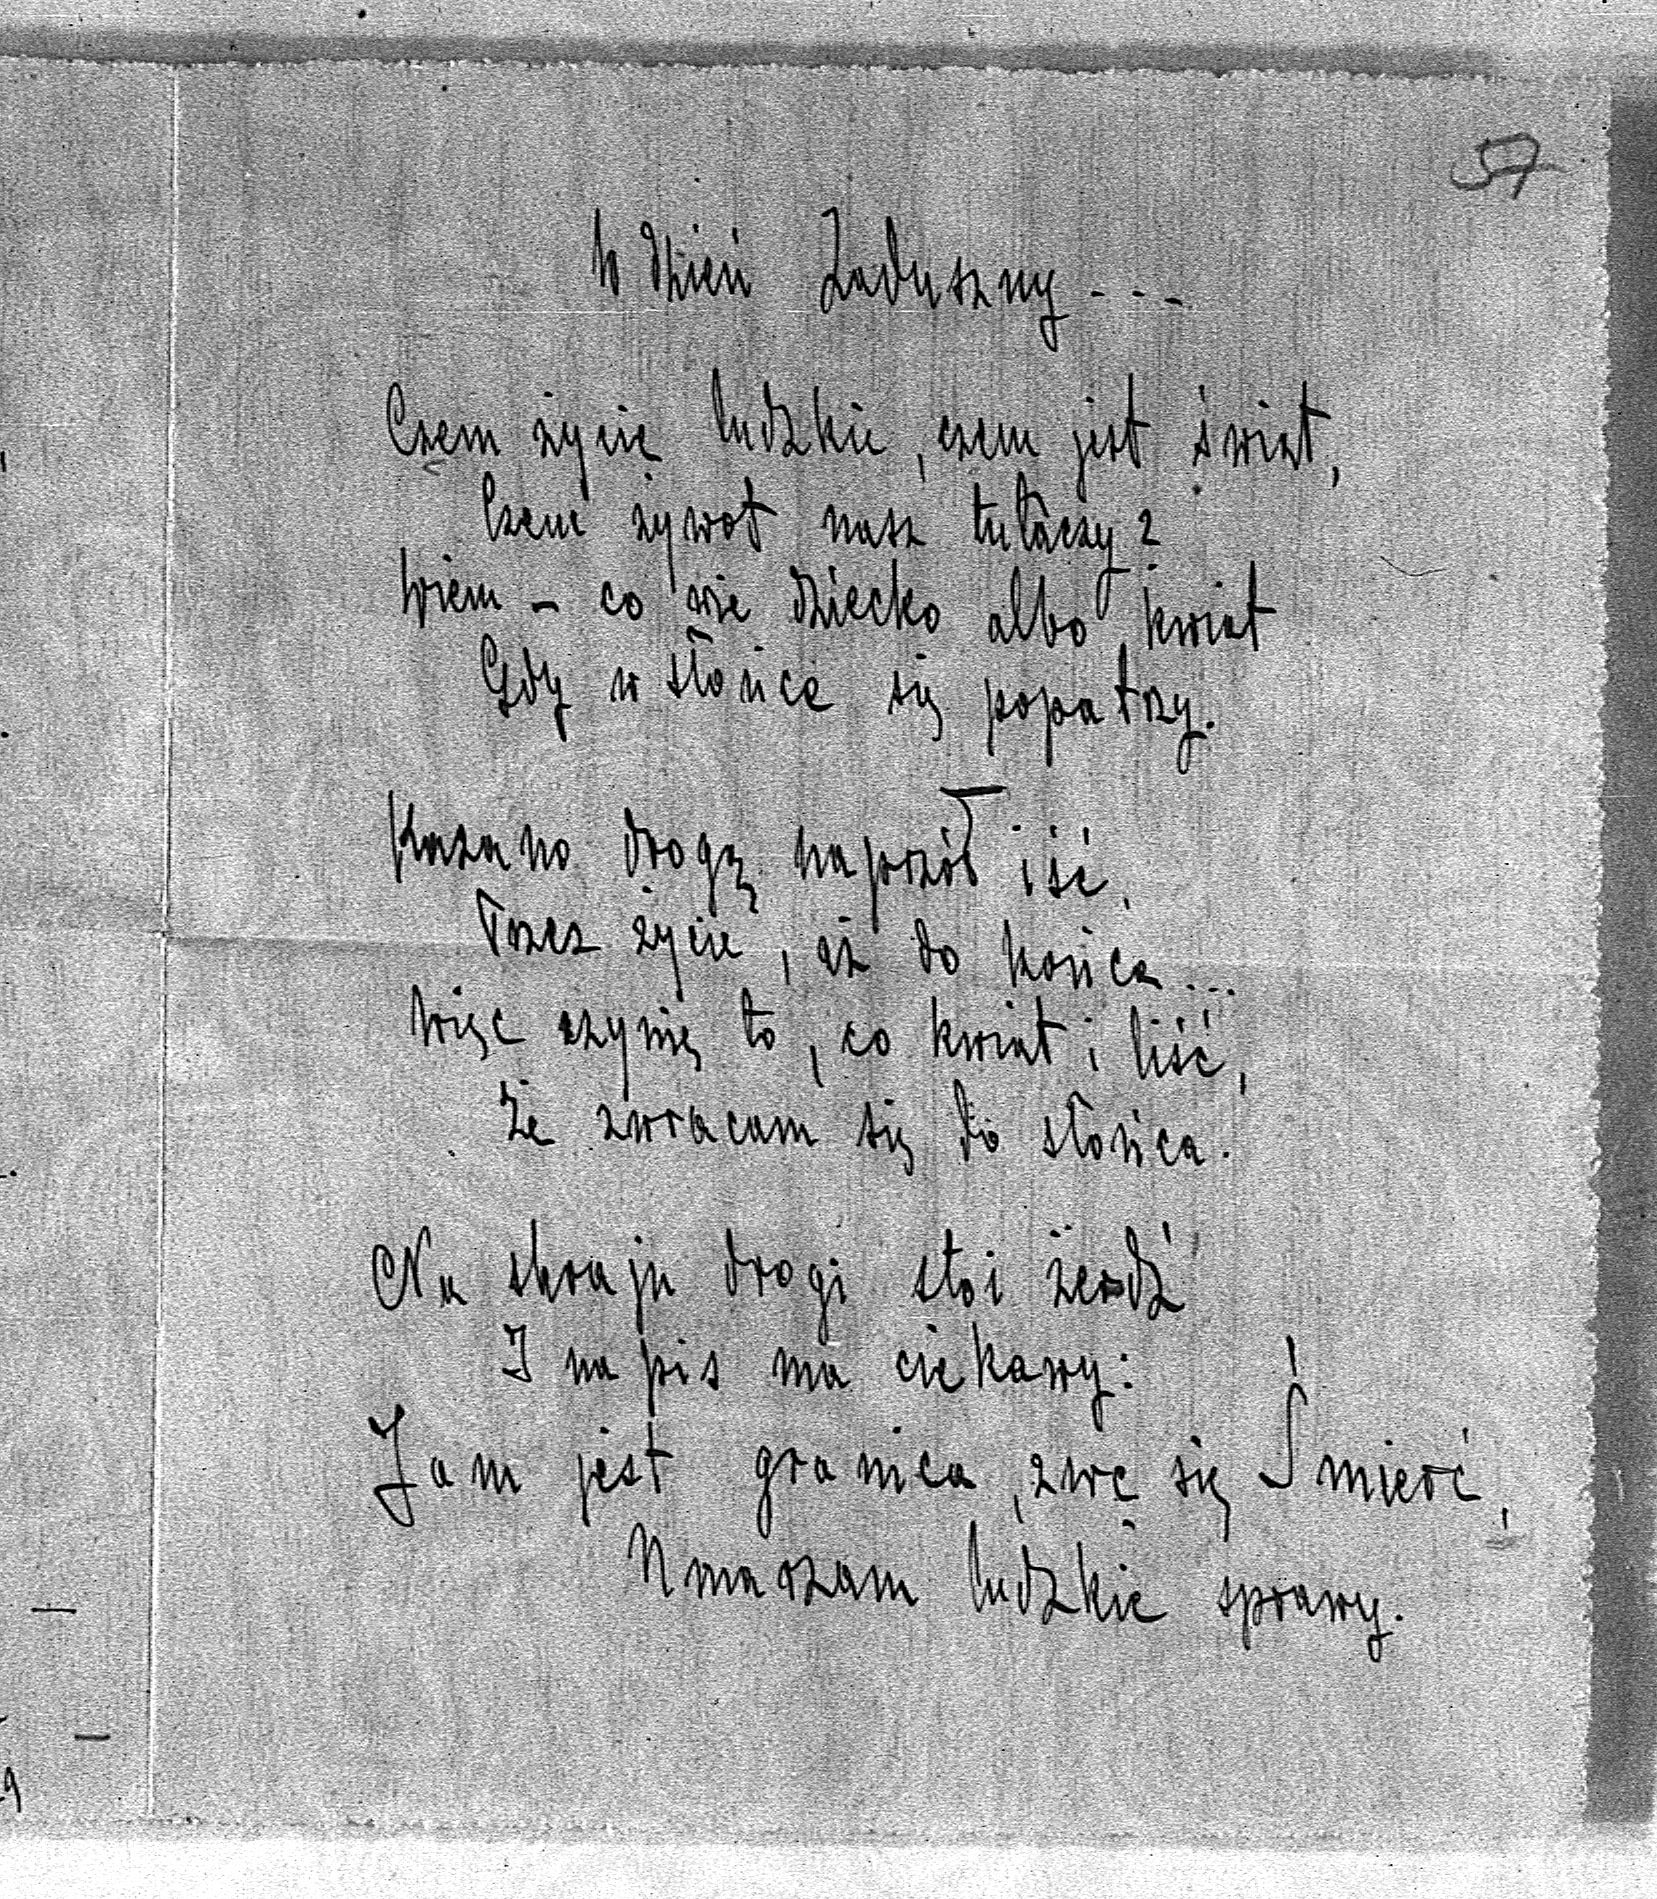 57
W dzień Zaduszny...
Czem życie ludzkie, czem jest świat,
Czem żywot nasz tułaczy?
Wiem – co wie dziecko albo kwiat
Gdy w słońce się popatrzy.
Kazano drogą naprzód iść,
Przez życie, aż do końca...
Więc czynię to, co kwiat i liść,
Że zwracam się do słońca.
Na skraju drogi stoi żerdź
I napis ma ciekawy:
Jam jest granica, zwę się Śmierć,
Umarzam ludzkie sprawy.